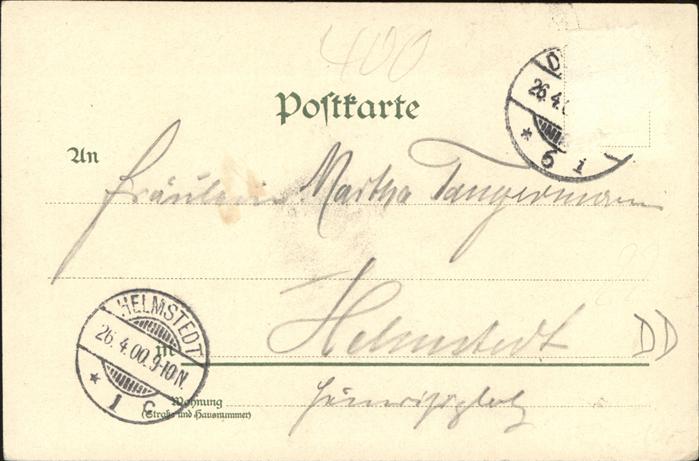 400
Postkarte
D
26.4.0
* 6 i
An
Fräulein Martha Tangermann
HELMSTEDT
26.4.00.9-10N.
* 1 c
in Helmstedt
DD
Wohnung
(Straße und Hausnummer)